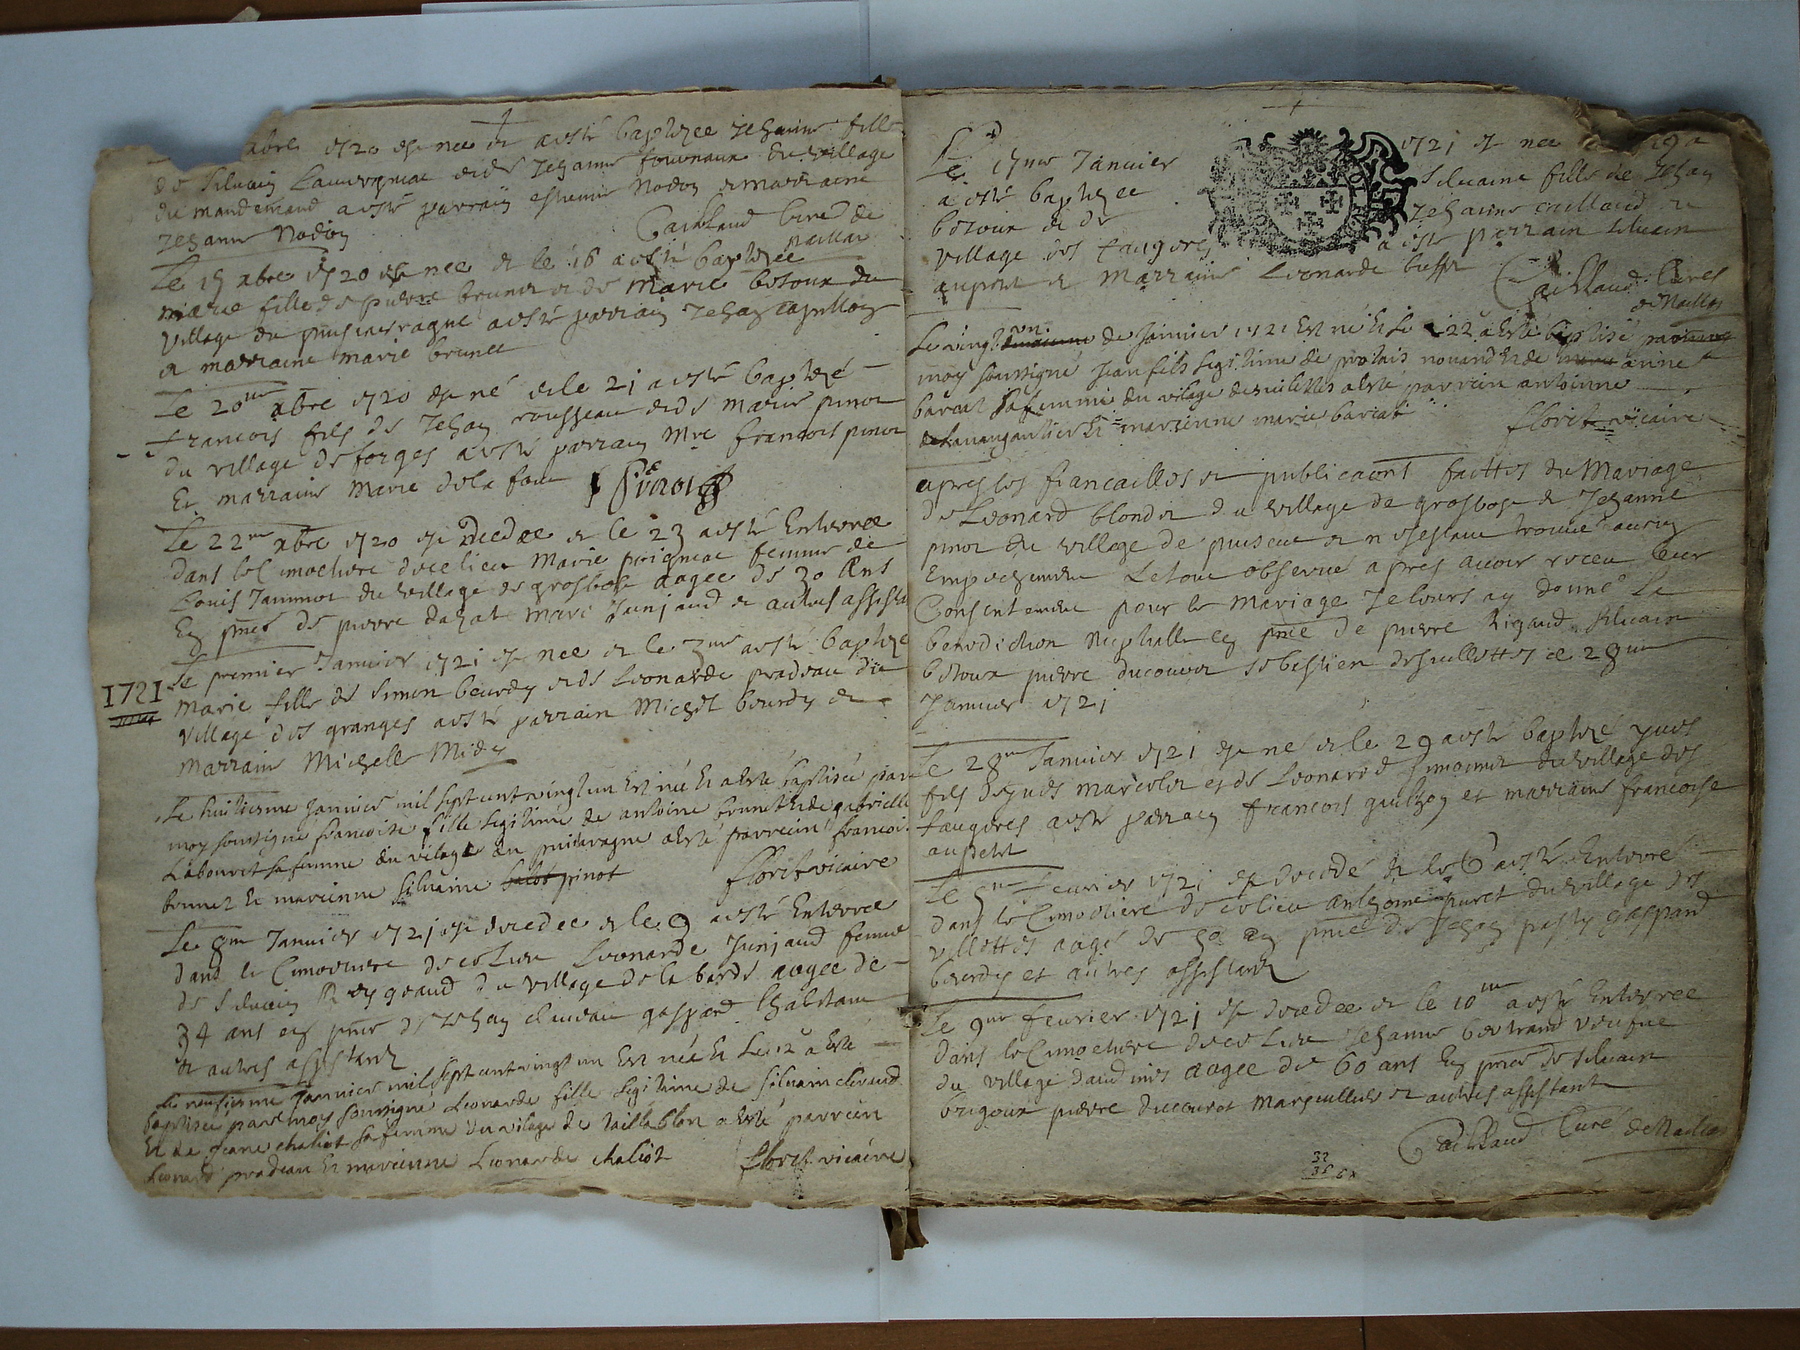 abre 1720 est nee et a esté baptizee Jehanne fille
de Silvain Lauvergnat et de Jehanne fournaux du village
du mandemand a esté parrain estienne Nadon et marraine
Jehanne Nadon
Caillaud Curé de
Naillat
Le 15 xbre 1720 est nee et le 16 a esté baptizee
marie fille de pierre brunet et de Marie betoux du
village du puischevragne a esté parrain Jehan
et marraine marie brunet
Le 20me xbre 1720 est né et le 21 a esté baptizé
francois fils de Jehan rousseau et de Marie pinot
du village de forges a esté parrain Mre francois pinot
Et marraine Marie dela
Le 22me xbre 1720 est Decedee et le 23 a esté Enterree
dans le Cimoetiere de ce lieu Marie prigniat femme de
Louis Jammot du village de grosbost aagee de 30 Ans
En pnce de pierre dazat Marc Junjaud et autres assista
1721
Le premier Janvier 1721 est nee et le 3me a esté baptize
Marie fille de Simon beurdy et de Leonarde pradeau du
village des granges a esté parrain Michel beurdy et
Marraine Michelle Midy
Le huitiesme janvier mil sept cent vingt un Est née Et a Esté baptisée par
moy soussigné francoise fille legitime de antoine brunet Et de gabrielle
Labouret sa femme du vilage du puichevragne a Esté parrein francois
brunet Et mareinne silvaine pinot
florit vicaire
Le 8me Janvier 1721 est decedee et le 9 a esté Enterree
dans le Cimoetiere de ce Lieu Leonarde Junjaud femme
de Silvain Reygeaud du village de la barde aagee de
34 ans en pnce de Jehan gaspard Chabetaut
et autres assistants
Le neufiesme janvier mil sept cent vingt un Est née Et Le 12 a Esté
baptisée par moy soussigné Leonarde fille legitime de silvain
Et de jeane chaliot sa femme du vilage de taillablon a Esté parrein
Leonard pradeau Et mareinne Leonarde chaliot
florit vicaire
Le 17me Janvier 1721 est nee
a esté baptizee Silvaine fille de Jehan
betoux et de Jehanne caillaud du
village des faugeres a esté parrain silvain
aupetit et Marraine Leonarde
Caillaud Curé
de Naillat
Le vingt un de Janvier 1721 Est né Et Le 22 a Esté baptisé
moy soussigné jean fils legitime de nouand Et de anne
bariat sa femme du vilage desvilettes a Esté parrein antoinne
Et mareinne marie bariat
florit vicaire
apres les fiancailles et publicaons faittes du Mariage
de Leonard blondet du village de grosbost et Jehanne
pinot du village de puiseau et n'estant trouvé aucun
Empechement Le tout observé apres avoir receu leur
Consentement pour le Mariage Je leurs ay donné La
benediction Nuptialle en pnce de pierre Rigaud silvain
betoux pierre ducouret sebastien desvillettes ce 28me
Janvier 1721
Le 28me Janvier 1721 est né et le 29 a esté baptizé yves
fils d'yves marcelot et de Leonarde simonnet du village des
faugeres a esté parrain francois guilhon et marraine francoise
aupetit
Le 5me fevrier 1721 est decedé et le 6 a esté Enterré
dans le Cimoetiere de ce lieu anthoine puret du village des
villettes aagé de 50 en pnce de Jehan pasty gaspard
beurdy et autres assistants
Le 9me fevrier 1721 est decedee et le 10me a esté Enterree
dans le Cimoetiere de ce Lieu Jehanne bertrand veufue
du village aagee de 60 ans En pnce de silvain
brigoux pierre ducouret et autres assistants
Caillaud Curé de Naillat